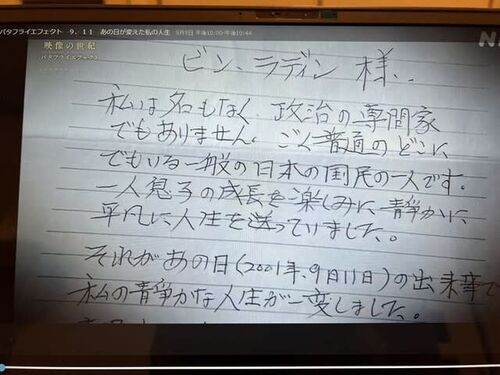 バタフライエフェクト 9.11 あの日が変えた私の人生 9月9日 午後10:00-午後10:44
映像の世紀
バタフライエフェクト
ビン、ラディン 様..
私は名もなく 政治の専門家
でもありません。ごく普通のどこに
でもいる一般の日本の国民の一人です。
一人息子の成長を楽しみに 静かに
平凡に人生を送っていました。
それがあの日(2001年、9月11日)の出来事で
私の静かな人生が一変しました。